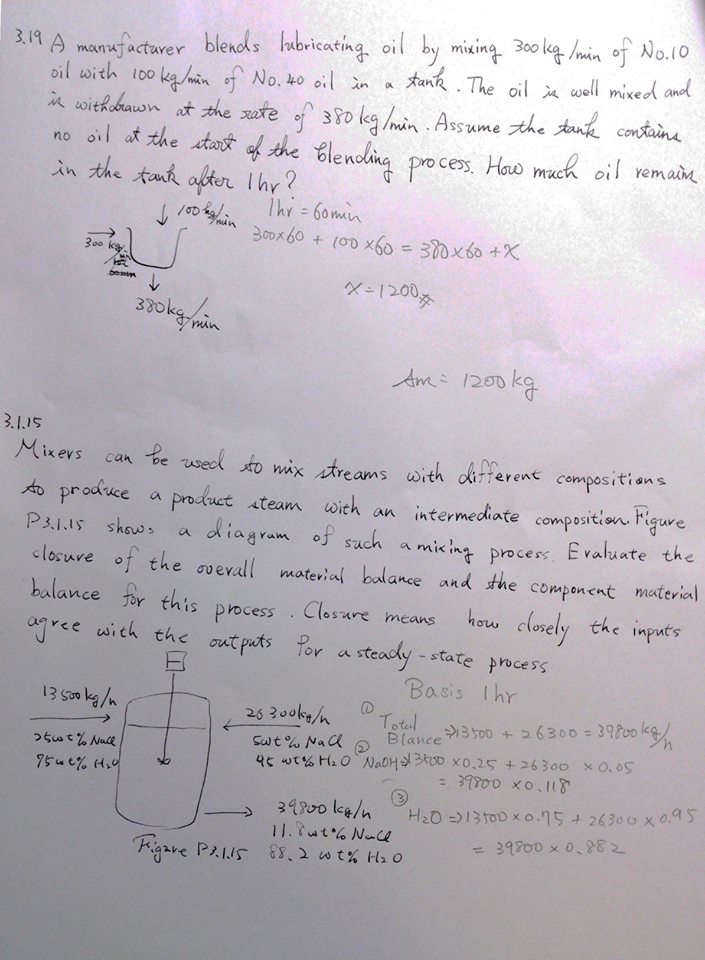 3.19 A manufacturer blends lubricating oil by mixing 300 kg/min of No.10
oil with 100 kg/min of No.40 oil in a tank. The oil is well mixed and
is withdrawn at the rate of 380 kg/min. Assume the tank contains
no oil at the start of the blending process. How much oil remains
in the tank after 1hr?
100 kg/min
1hr = 60min
300 kg/min
300x60 + 100x60 = 380x60 + x
380kg/min
x = 1200
Ans = 1200 kg
3.1.15
Mixers can be used to mix streams with different compositions
to produce a product steam with an intermediate composition. Figure
P3.1.15 shows a diagram of such a mixing process. Evaluate the
closure of the overall material balance and the component material
balance for this process. Closure means how closely the inputs
agree with the outputs for a steady-state process
Basis 1hr
13500kg/h
25wt% NaCl
75wt% H2O
26300kg/h
5wt% NaCl
95 wt% H2O
39800 kg/h
11.8wt% NaCl
88.2 wt% H2O
Figure P3.1.15
① Total
Blance => 13500 + 26300 = 39800 kg/h
② NaOH => 13500 x0.25 + 26300 x 0.05
= 39800 x 0.118
③ H2O => 13500 x 0.75 + 26300 x 0.95
= 39800 x 0.882